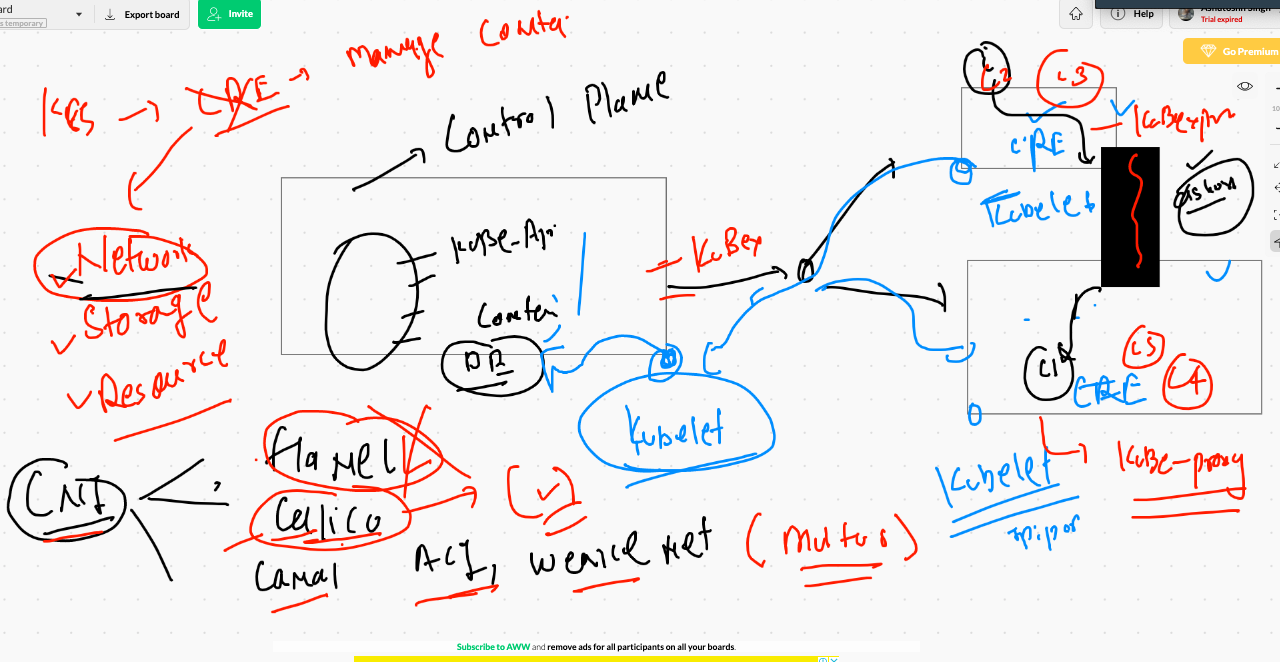 ard
s temporary
Export board
Invite
Help
Ashutosh Singh
Trial expired
Go Premium
K8S → CRE → Manage Contai
Control Plane
Network
Storage
Resource
Kube-Api
Contai
DB
Kubelet
C3
CRE
Kubelet
C1
C5
C4
CRE
Kubelet
Kube-proxy
CNI
Flannel
Calico
Canal
ACI,
net
(Multus)
Subscribe to AWW and remove ads for all participants on all your boards.